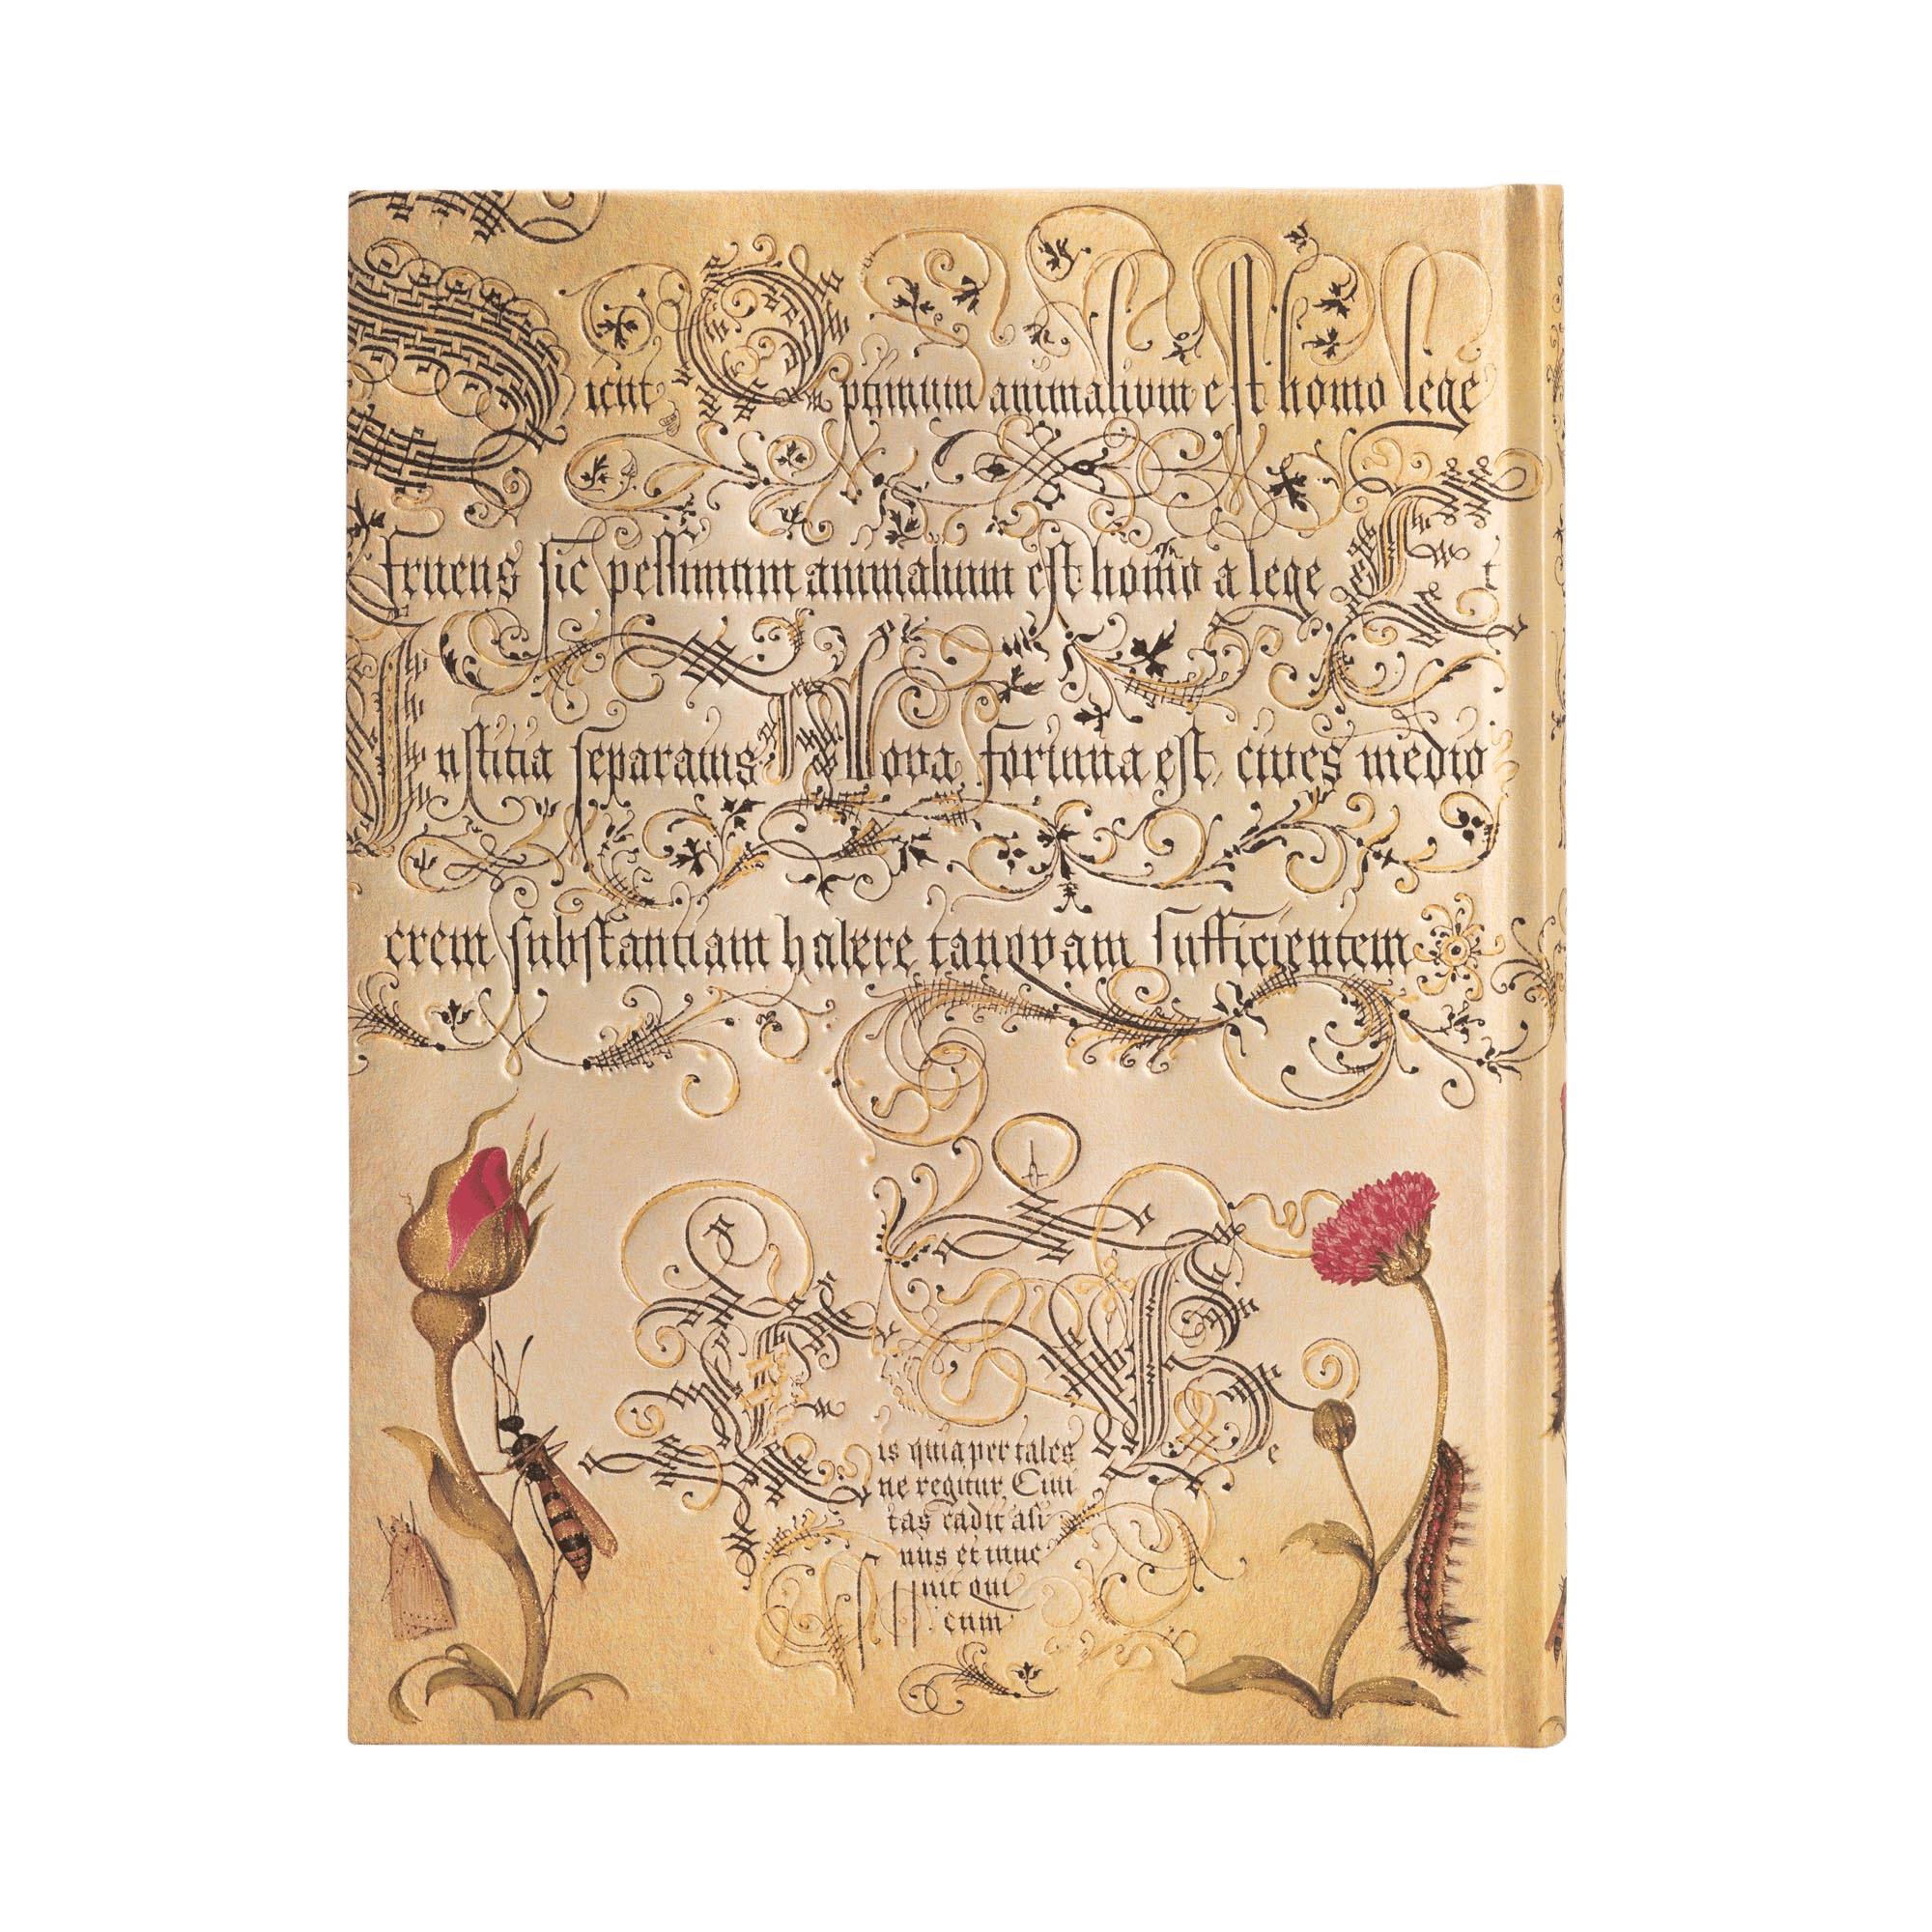 Sicut Optimum animalium est homo lege
Fruens sic pessimum animalium est homo a lege Et
Iustitia separatus fortuna est, cives medio
crem substantiam habere tanqvam sufficientem
is quia per tales Be
ne regitur. Civi
tas cadit asi
nus et inue
nit qui
eum